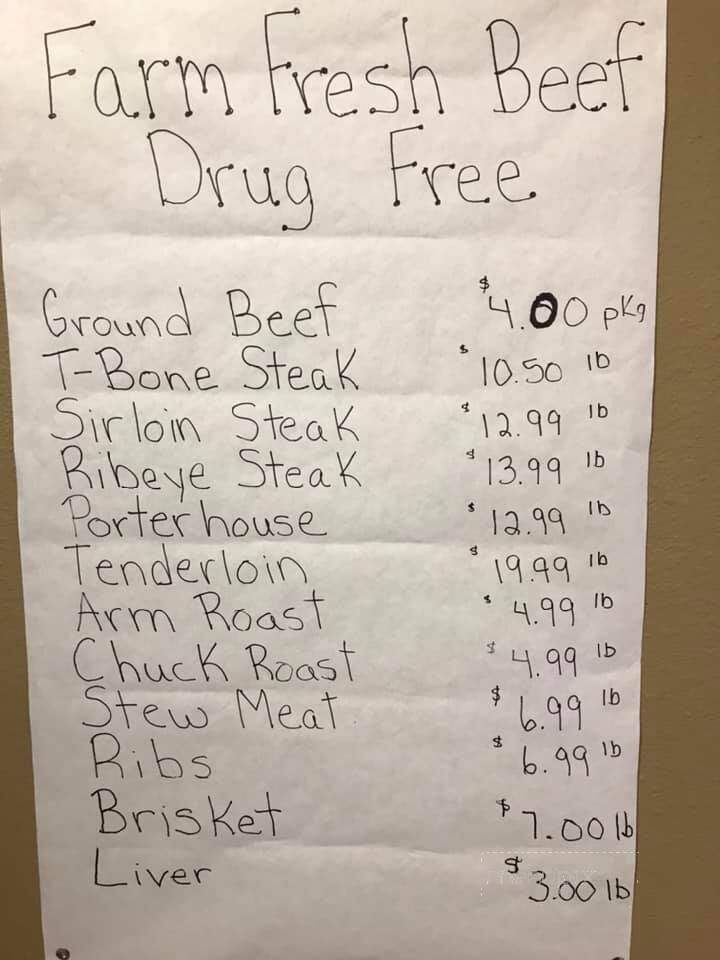 Farm Fresh Beef
Drug Free
Ground Beef $4.00 pkg
T-Bone Steak $10.50 lb
Sirloin Steak $12.99 lb
Ribeye Steak $13.99 lb
Porterhouse $12.99 lb
Tenderloin $19.99 lb
Arm Roast $4.99 lb
Chuck Roast $4.99 lb
Stew Meat $6.99 lb
Ribs $6.99 lb
Brisket $7.00 lb
Liver $3.00 lb